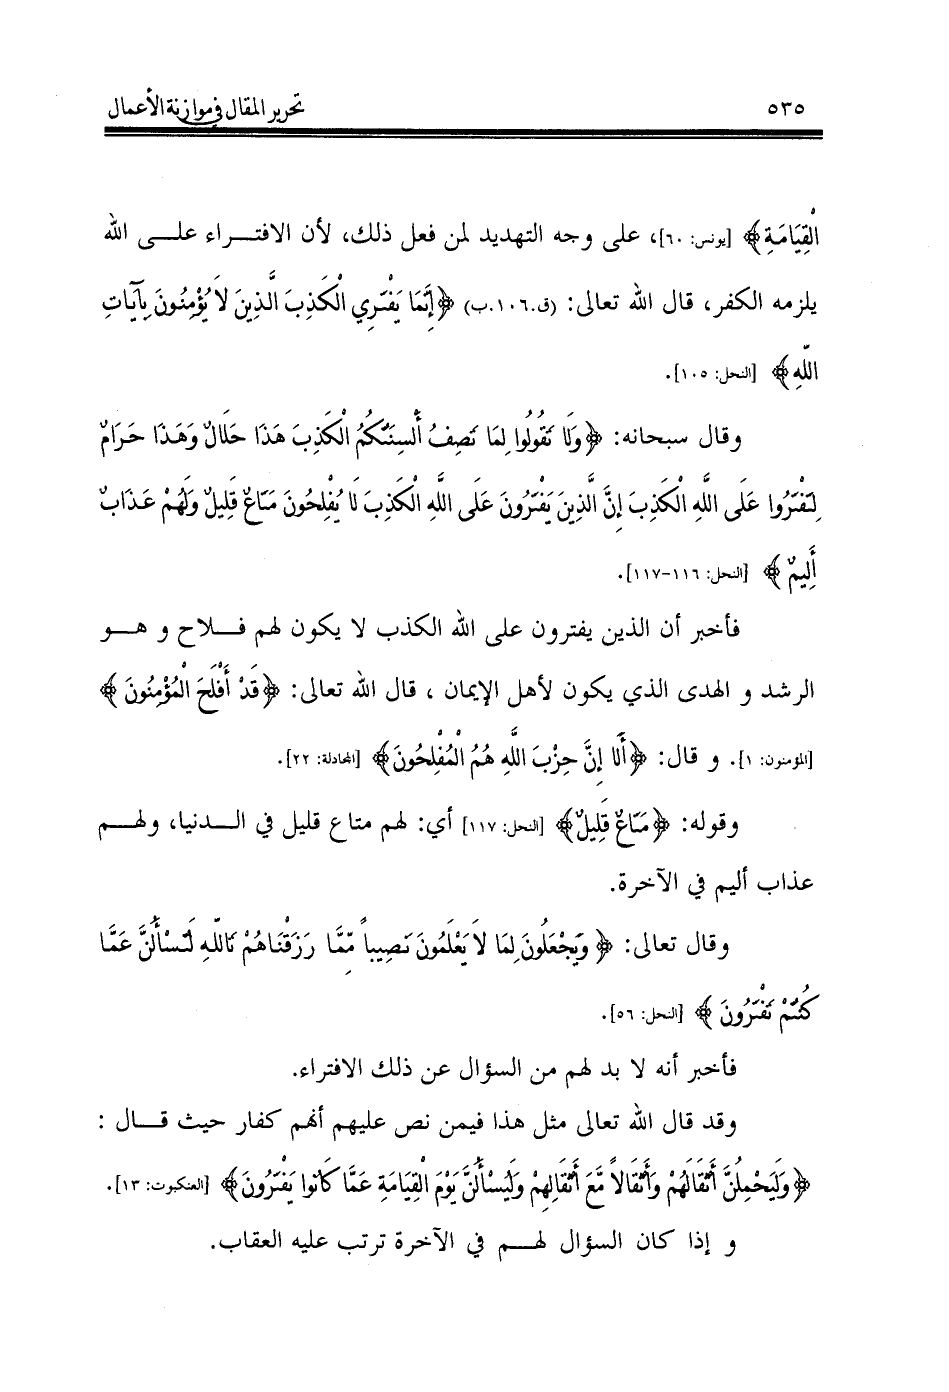 تحرير المقال في موازنة الأعمال ٥٣٥
الْقِيَامَةِ﴾ [يونس: ٦٠]، على وجه التهديد لمن فعل ذلك، لأن الافتراء على الله
يلزمه الكفر، قال الله تعالى: (ق.١٠٦.ب) ﴿إِنَّمَا يَفْتَرِي الْكَذِبَ الَّذِينَ لاَ يُؤْمِنُونَ بِآيَاتِ
اللّهِ﴾ [النحل: ١٠٥].
وقال سبحانه: ﴿وَلَا تَقُولُوا لِمَا تَصِفُ أَلْسِنَتُكُمُ الْكَذِبَ هَذَا حَلَالٌ وَهَذَا حَرَامٌ
لِتَفْتَرُوا عَلَى اللَّهِ الْكَذِبَ إِنَّ الَّذِينَ يَفْتَرُونَ عَلَى اللَّهِ الْكَذِبَ لَا يُفْلِحُونَ مَتَاعٌ قَلِيلٌ وَلَهُمْ عَذَابٌ
أَلِيمٌ﴾ [النحل: ١١٦-١١٧].
فأخبر أن الذين يفترون على الله الكذب لا يكون لهم فلاح و هو
الرشد و الهدى الذي يكون لأهل الإيمان ، قال الله تعالى: ﴿قَدْ أَفْلَحَ الْمُؤْمِنُونَ﴾
[المؤمنون: ١]. و قال: ﴿أَلَا إِنَّ حِزْبَ اللَّهِ هُمُ الْمُفْلِحُونَ﴾ [المجادلة: ٢٢].
وقوله: ﴿مَتَاعٌ قَلِيلٌ﴾ [النحل: ١١٧] أي: لهم متاع قليل في الدنيا، ولهم
عذاب أليم في الآخرة.
وقال تعالى: ﴿وَيَجْعَلُونَ لِمَا لاَ يَعْلَمُونَ نَصِيباً مِّمَّا رَزَقْنَاهُمْ تَاللّهِ لَتُسْأَلُنَّ عَمَّا
كُنتُمْ تَفْتَرُونَ﴾ [النحل: ٥٦].
فأخبر أنه لا بد لهم من السؤال عن ذلك الافتراء.
وقد قال الله تعالى مثل هذا فيمن نص عليهم أنهم كفار حيث قال :
﴿وَلَيَحْمِلُنَّ أَثْقَالَهُمْ وَأَثْقَالاً مَّعَ أَثْقَالِهِمْ وَلَيُسْأَلُنَّ يَوْمَ الْقِيَامَةِ عَمَّا كَانُوا يَفْتَرُونَ﴾ [العنكبوت: ١٣].
و إذا كان السؤال لهم في الآخرة ترتب عليه العقاب.